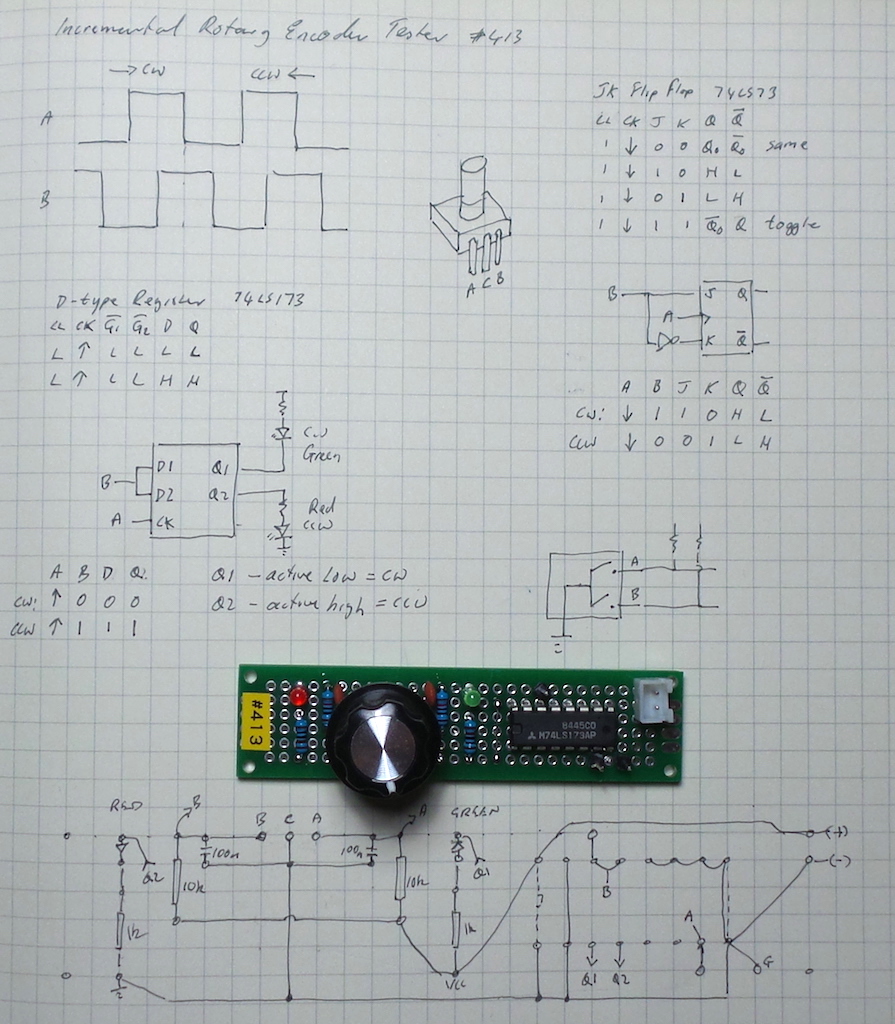 Incremental Rotary Encoder Tester #413
→ CW CCW ←
A
B
A C B
JK Flip Flop 74LS73
CL CK J K Q Q̅
1 ↓ 0 0 Q₀ Q̅₀ same
1 ↓ 1 0 H L
1 ↓ 0 1 L H
1 ↓ 1 1 Q̅₀ Q toggle
B J Q
A
K Q̅
A B J K Q Q̅
CW: ↓ 1 1 0 H L
CCW ↓ 0 0 1 L H
D-type Register 74LS173
CL CK G̅1 G̅2 D Q
L ↑ L L L L
L ↑ L L H H
CW
Green
D1 Q1
B
D2 Q2
A CK
Red
CCW
A B D Q
CW: ↑ 0 0 0
CCW ↑ 1 1 1
Q1 - active low = CW
Q2 - active high = CCW
A
B
#413
8445C0
M74LS173AP
RED B B C A A GREEN
100n 100n
Q2 Q1
10k 10k
1k 1k
VCC
(+)
(-)
B
A
Q1 Q2 G